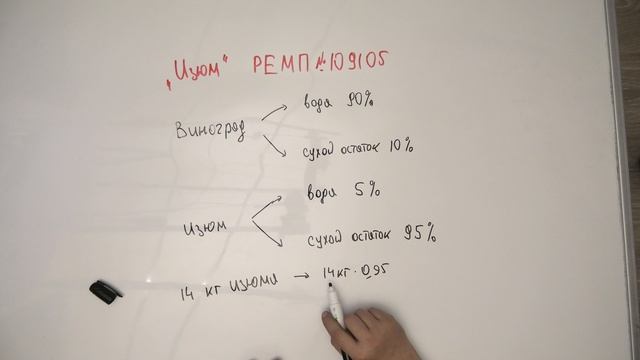 "Изюм" РЕМП №109105
вода 90%
Виноград
сухой остаток 10%
вода 5%
Изюм
сухой остаток 95%
14 кг изюма → 14кг · 0,95